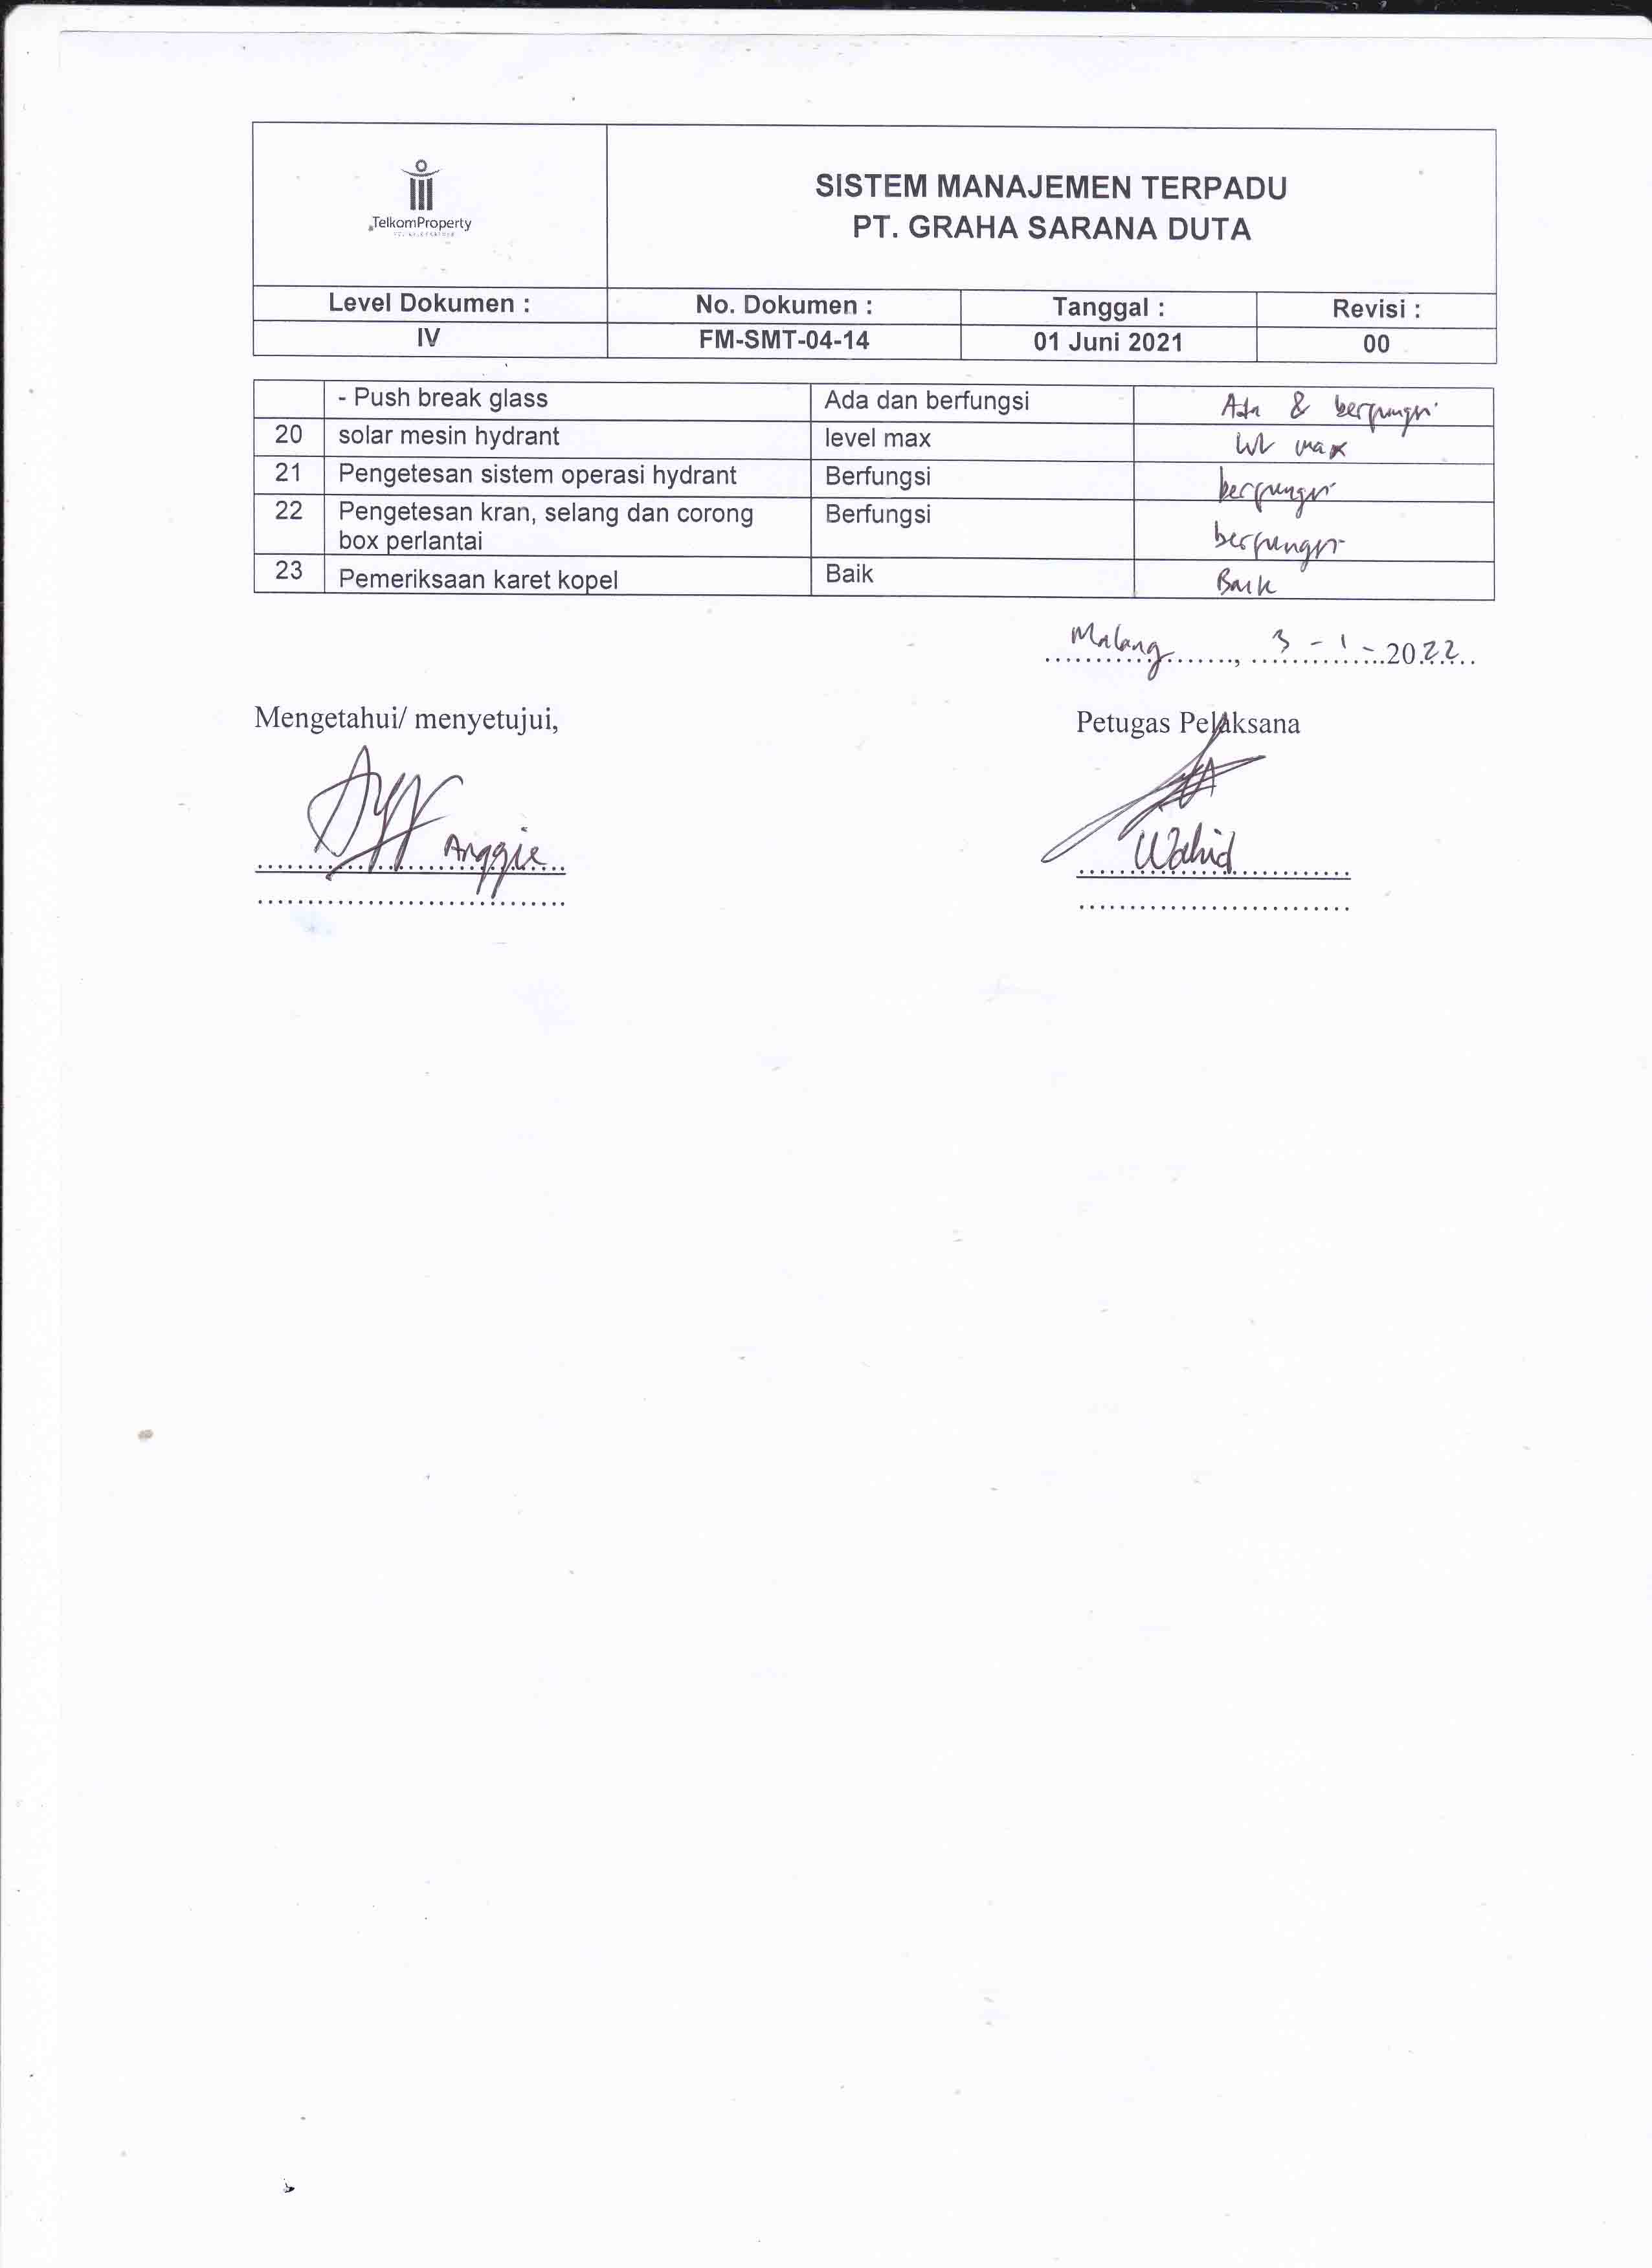 SISTEM MANAJEMEN TERPADU
PT. GRAHA SARANA DUTA
TelkomProperty
Level Dokumen : No. Dokumen : Tanggal : Revisi :
IV FM-SMT-04-14 01 Juni 2021 00
- Push break glass Ada dan berfungsi Ada & berfungsi
20 solar mesin hydrant level max lvl max
21 Pengetesan sistem operasi hydrant Berfungsi berfungsi
22 Pengetesan kran, selang dan corong Berfungsi berfungsi
box perlantai
23 Pemeriksaan karet kopel Baik Baik
Malang, 3 - 1 - 2022
Mengetahui/ menyetujui, Petugas Pelaksana
Anggie Wahid